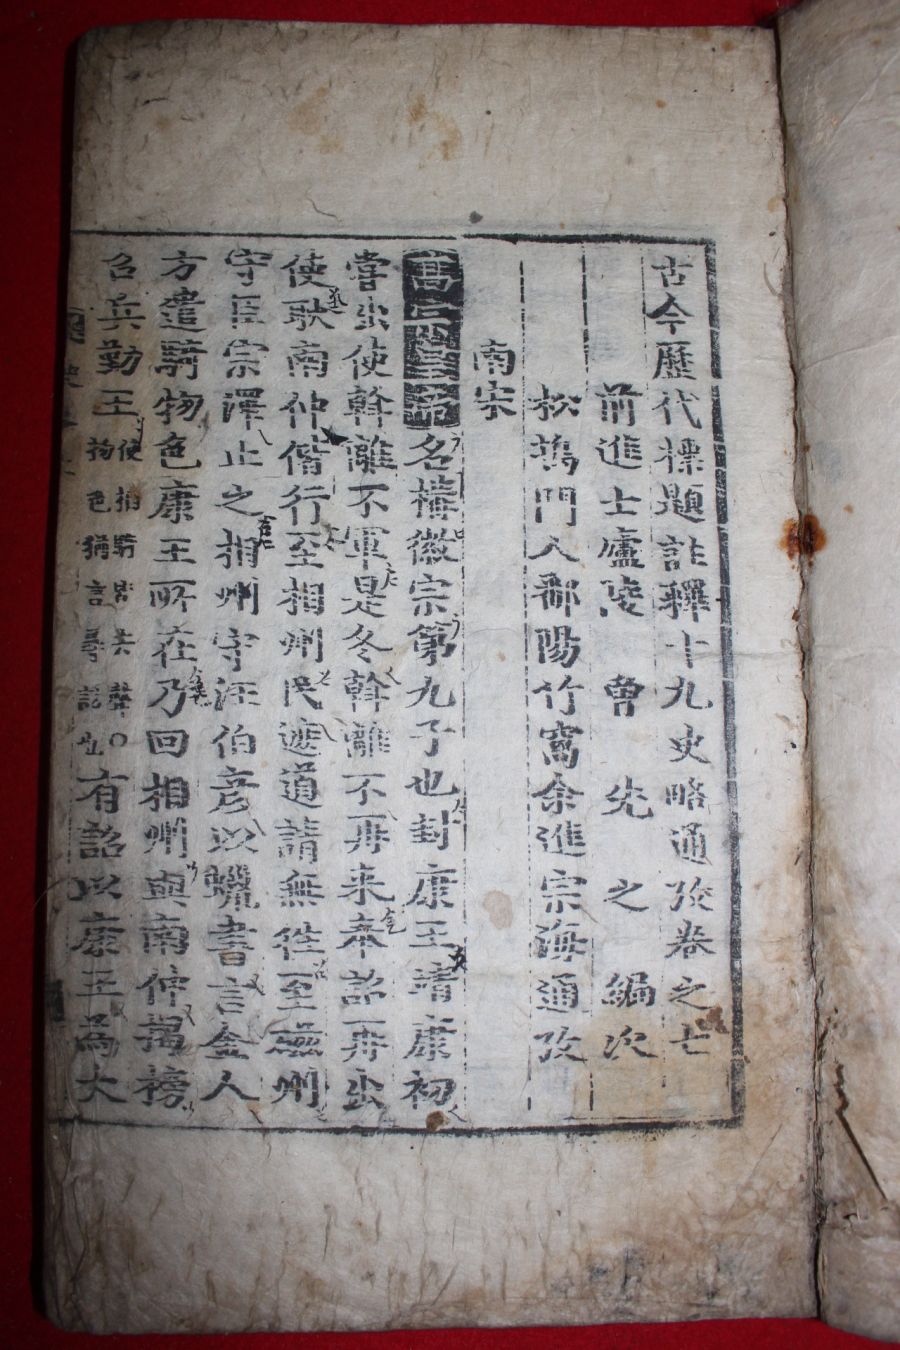 古今歷代標題註釋十九史略通攷卷之七
前進士廬陵 曾 先 之 編次
松塢門人鄱陽竹窩余進宗海通攷
南宋
高宗皇帝名構徽宗第九子也封康王靖康初
嘗出使斡離不軍是冬斡離不再来奉詔再出
使耿南仲偕行至相州民遮道請無徃至磁州
守臣宗澤止之相州守汪伯彦以蠟書言金人
方遣騎物色康王所在乃回相州與南仲揭榜
召兵勤王
物色猶言尋認也
有詔以康王爲大